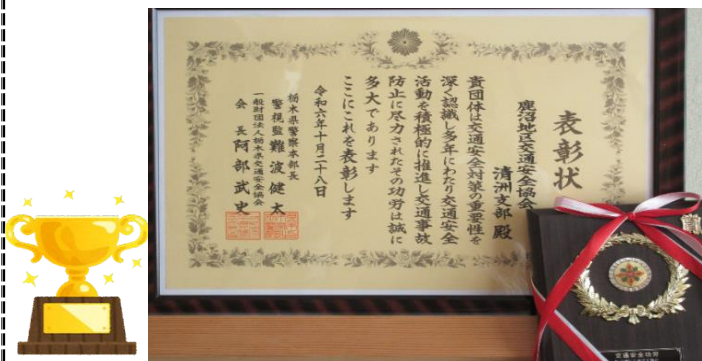 表彰状
鹿沼地区交通安全協会
清洲支部 殿
貴団体は交通安全対策の重要性を
深く認識し多年にわたり交通安全
活動を積極的に推進し交通事故
防止に尽力されたその功労は誠に
多大であります
ここにこれを表彰します
令和六年十月二十八日
栃木県警察本部長
警視監 難波健太
一般財団法人栃木県交通安全協会
会長 阿部武史
交通安全功労